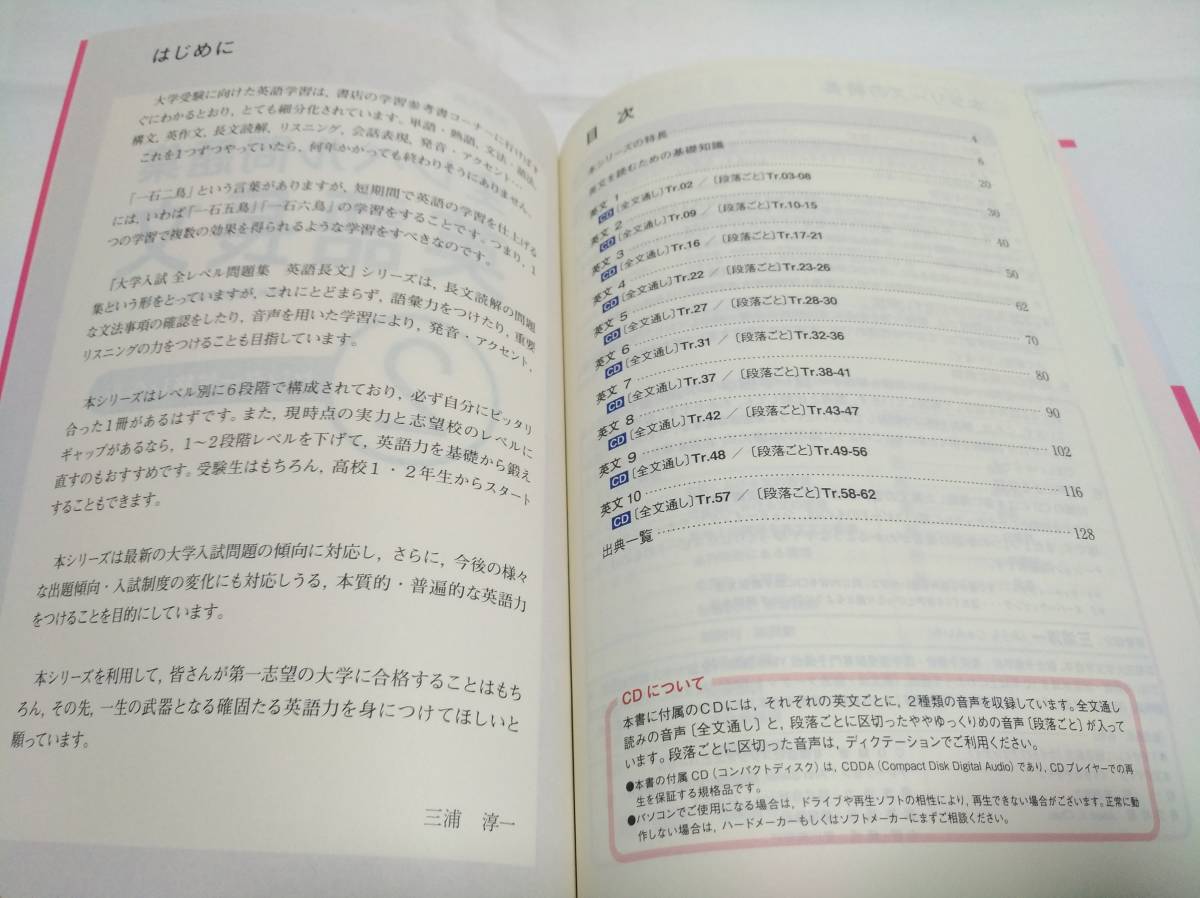 はじめに
大学受験に向けた英語学習は，書店の学習参考書コーナーに行けばす
ぐにわかるとおり，とても細分化されています。単語・熟語，文法・語法，
構文，英作文，長文読解，リスニング，会話表現，発音・アクセント…
これを1つずつやっていたら，何年かかっても終わりそうにありません。
「一石二鳥」という言葉がありますが，短期間で英語の学習を仕上げる
には，いわば「一石五鳥」「一石六鳥」の学習をすることです。つまり，1
つの学習で複数の効果を得られるような学習をすべきなのです。
『大学入試 全レベル問題集 英語長文』シリーズは，長文読解の問題
集という形をとっていますが，これにとどまらず，語彙力をつけたり，重要
な文法事項の確認をしたり，音声を用いた学習により，発音・アクセント，
リスニングの力をつけることも目指しています。
本シリーズはレベル別に6段階で構成されており，必ず自分にピッタリ
合った1冊があるはずです。また，現時点の実力と志望校のレベルに
ギャップがあるなら，1〜2段階レベルを下げて，英語力を基礎から鍛え
直すのもおすすめです。受験生はもちろん，高校1・2年生からスタート
することもできます。
本シリーズは最新の大学入試問題の傾向に対応し，さらに，今後の様々
な出題傾向・入試制度の変化にも対応しうる，本質的・普遍的な英語力
をつけることを目的にしています。
本シリーズを利用して，皆さんが第一志望の大学に合格することはもち
ろん，その先，一生の武器となる確固たる英語力を身につけてほしいと
願っています。
三浦 淳一
目 次
本シリーズの特長 4
英文を読むための基礎知識 6
英文 1 20
CD〔全文通し〕Tr.02 ／〔段落ごと〕Tr.03-08
英文 2 30
CD〔全文通し〕Tr.09 ／〔段落ごと〕Tr.10-15
英文 3 40
CD〔全文通し〕Tr.16 ／〔段落ごと〕Tr.17-21
英文 4 50
CD〔全文通し〕Tr.22 ／〔段落ごと〕Tr.23-26
英文 5 62
CD〔全文通し〕Tr.27 ／〔段落ごと〕Tr.28-30
英文 6 70
CD〔全文通し〕Tr.31 ／〔段落ごと〕Tr.32-36
英文 7 80
CD〔全文通し〕Tr.37 ／〔段落ごと〕Tr.38-41
英文 8 90
CD〔全文通し〕Tr.42 ／〔段落ごと〕Tr.43-47
英文 9 102
CD〔全文通し〕Tr.48 ／〔段落ごと〕Tr.49-56
英文 10 116
CD〔全文通し〕Tr.57 ／〔段落ごと〕Tr.58-62
出典一覧 128
CDについて
本書に付属のCDには，それぞれの英文ごとに，2種類の音声を収録しています。全文通し
読みの音声〔全文通し〕と，段落ごとに区切ったややゆっくりめの音声〔段落ごと〕が入って
います。段落ごとに区切った音声は，ディクテーションでご利用ください。
●本書の付属CD（コンパクトディスク）は，CDDA（Compact Disk Digital Audio）であり，CDプレイヤーでの再
生を保証する規格品です。
●パソコンでご使用になる場合は，ドライブや再生ソフトの相性により，再生できない場合がございます。正常に動
作しない場合は，ハードメーカーもしくはソフトメーカーにまずご相談ください。